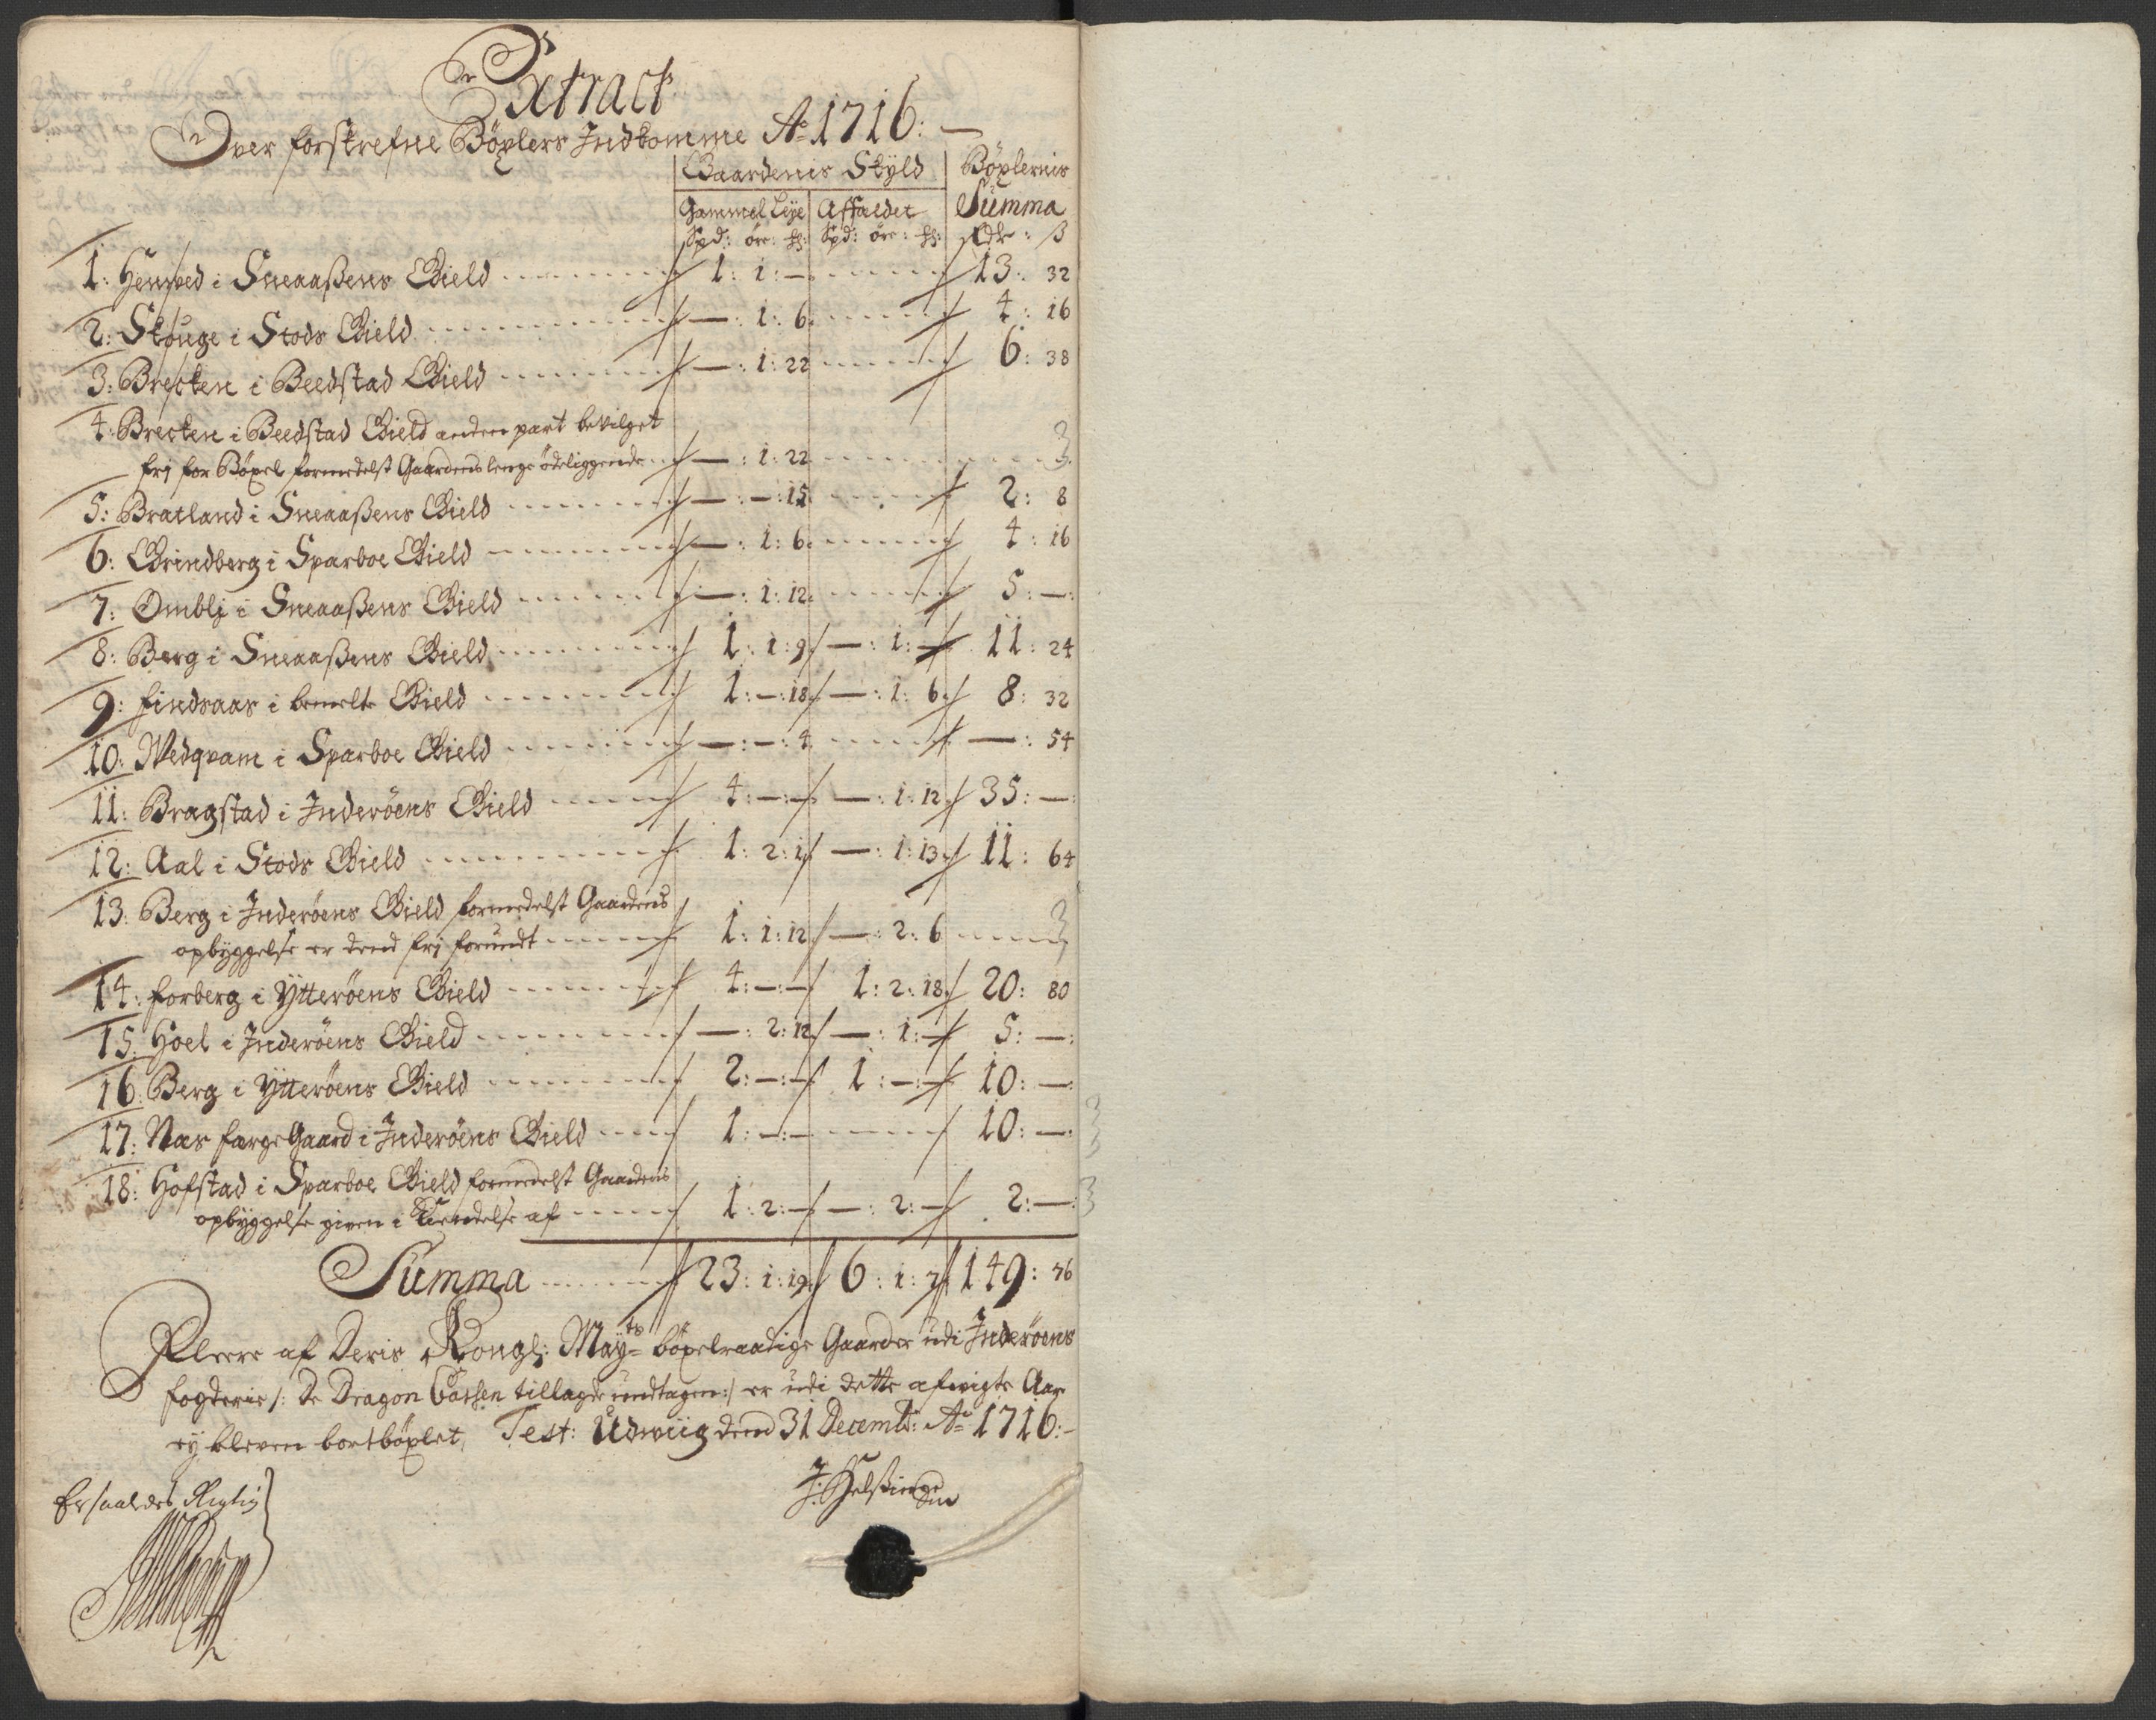 Extract
Over forskrefne Böxlers Indkomme Ao 1716:
Gaardenis Skyld Böxlernis
Gammel Leje Affældet Summa
Spd: öre: Spd: öre: Rdr: ß
1: Hemved i Sneaaßens Gield 1: 1: — 13: 32
2: Skouge i Stods Gield —: 1: 6 4: 16
3: Brecken i Beedstad Gield —: 1: 22 6: 38
4: Brecken i Beedstad Gield anden part bevilget
frj for Böxel formedelst Gaardens lenge ödeliggende —: 1: 22
5: Bratland i Sneaaßens Gield —: —: 15 2: 8
6: Grindberg i Sparboe Gield —: 1: 6 4: 16
7: Omblj i Sneaaßens Gield —: 1: 12 5: —:
8: Berg i Sneaaßens Gield 1: 1: 9 —: 1: — 11: 24
9: Findsaas i bemelte Gield 1: —: 18 —: 1: 6 8: 32
10: Wedqvam i Sparboe Gield —: —: 4 —: 54
11: Bragstad i Inderöens Gield 4: —: — —: 1: 12 35: —:
12: Aal i Stods Gield 1: 2: 1 —: 1: 13 11: 64
13: Berg i Inderöens Gield formedelst Gaardens
opbyggelse er dend frj forundt 1: 1: 12 —: 2: 6
14: Forberg i Ytteröens Gield 4: —: — 1: 2: 18 20: 80
15: Hoel i Inderöens Gield —: 2: 12 —: 1: — 5: —:
16: Berg i Ytteröens Gield 2: —: — 1: —: — 10: —:
17: Næs færge Gaard i Inderöens Gield 1: —: — 10: —:
18: Hofstad i Sparboe Gield formedelst Gaardens
opbyggelse given i Kiendelse af 1: 2: — —: 2: — 2: —:
Summa 23: 1: 19 6: 1: 7 149: 76
Fleere af Deris Kongl: Mayts böxelraadige Gaarder udi Inderöens
fogderie /: De Dragon Cassen tillagde undtagen:/ er udi dette afvigte Aar
ej bleven bortböxlet, Test: Udwiig dend 31 Decembr: Ao 1716:
Er saaledes Rigtig